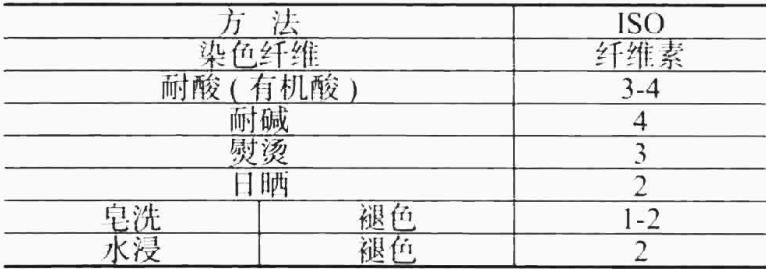 方 法 ISO
染色纤维 纤维素
耐酸(有机酸) 3-4
耐碱 4
熨烫 3
日晒 2
皂洗 褪色 1-2
水浸 褪色 2